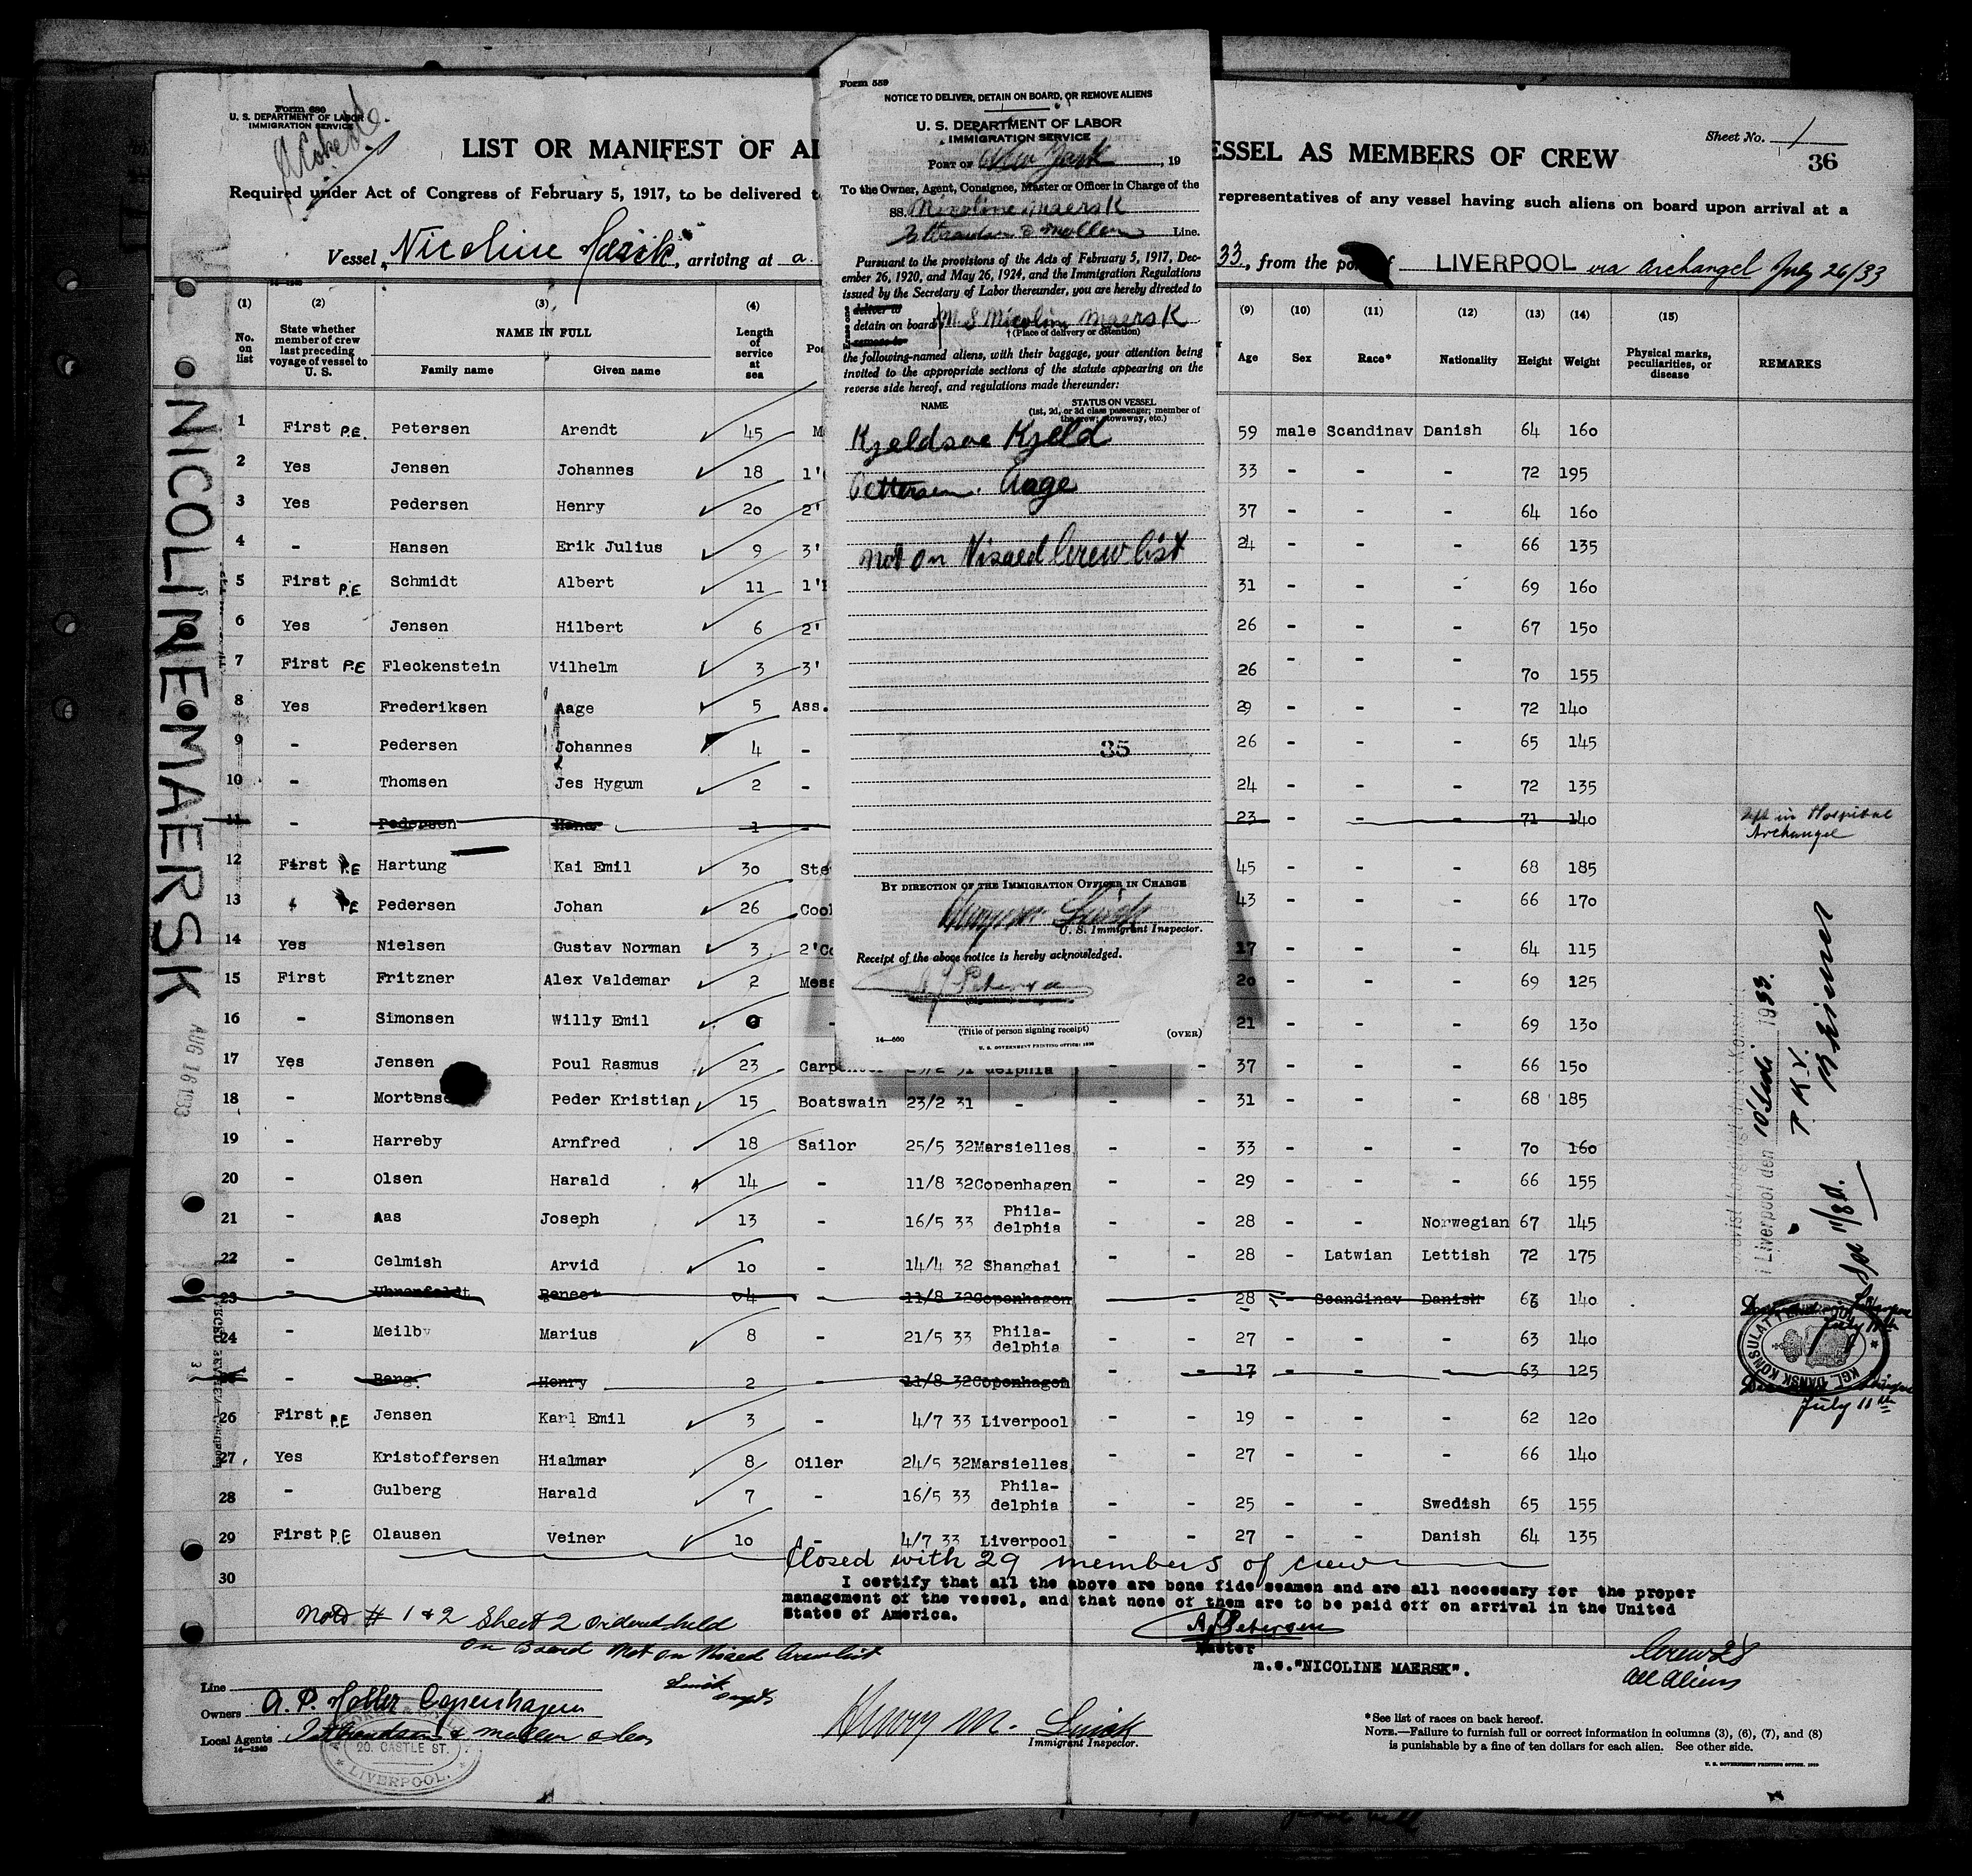 Form 680
U. S. DEPARTMENT OF LABOR
IMMIGRATION SERVICE
LIST OR MANIFEST OF AL
ESSEL AS MEMBERS OF CREW
Sheet No. 1
36
Required under Act of Congress of February 5, 1917, to be delivered t
representatives of any vessel having such aliens on board upon arrival at a
Vessel Nicoline Maersk, arriving at a
33, from the port of LIVERPOOL via Archangel July 26/33
14-1240
(1) (2) (3) (4) (9) (10) (11) (12) (13) (14) (15)
No. on list
State whether member of crew last preceding voyage of vessel to U. S.
NAME IN FULL
Family name Given name
Length of service at sea
Pos
Age Sex Race* Nationality Height Weight Physical marks, peculiarities, or disease REMARKS
1 First P.E. Petersen Arendt 45 M 59 male Scandinav Danish 64 160
2 Yes Jensen Johannes 18 1' 33 - - - 72 195
3 Yes Pedersen Henry 20 2' 37 - - - 64 160
4 - Hansen Erik Julius 9 3' 24 - - - 66 135
5 First P.E Schmidt Albert 11 1' 31 - - - 69 160
6 Yes Jensen Hilbert 6 2' 26 - - - 67 150
7 First P.E Fleckenstein Vilhelm 3 3' 26 - - - 70 155
8 Yes Frederiksen Aage 5 Ass. 29 - - - 72 140
9 - Pedersen Johannes 4 - 26 - - - 65 145
10 - Thomsen Jes Hygum 2 - 24 - - - 72 135
11 - Pedersen Hans 1 - 23 - - - 71 140 left in Hospital Archangel
12 First P.E Hartung Kai Emil 30 Ste 45 - - - 68 185
13 P.E Pedersen Johan 26 Cook 43 - - - 66 170
14 Yes Nielsen Gustav Norman 3 2'Co 17 - - - 64 115
15 First Fritzner Alex Valdemar 2 Mess 20 - - - 69 125
16 - Simonsen Willy Emil 0 - 21 - - - 69 130
17 Yes Jensen Poul Rasmus 23 Carpenter 23/2 31 delphia - - 37 - - - 66 150
18 - Mortensen Peder Kristian 15 Boatswain 23/2 31 - - - 31 - - - 68 185
19 - Harreby Arnfred 18 Sailor 25/5 32 Marsielles - - 33 - - - 70 160
20 - Olsen Harald 14 - 11/8 32 Copenhagen - - 29 - - - 66 155
21 - Aas Joseph 13 - 16/5 33 Phila-delphia - - 28 - - Norwegian 67 145
22 - Celmish Arvid 10 - 14/4 32 Shanghai - - 28 - Latwian Lettish 72 175
23 - 4 - 11/8 32 Copenhagen - - 28 - Scandinav Danish 63 140
24 - Meilby Marius 8 - 21/5 33 Phila-delphia - - 27 - - - 63 140
- Berg Henry 2 - 11/8 32 Copenhagen - - 17 - - - 63 125
July 11th
26 First P.E Jensen Karl Emil 3 - 4/7 33 Liverpool - - 19 - - - 62 120
27 Yes Kristoffersen Hialmar 8 Oiler 24/5 32 Marsielles - - 27 - - - 66 140
28 - Gulberg Harald 7 - 16/5 33 Phila-delphia - - 25 - - Swedish 65 155
29 First P.E Olausen Veiner 10 - 4/7 33 Liverpool - - 27 - - Danish 64 135
Closed with 29 members of crew
30
I certify that all the above are bone fide seamen and are all necessary for the proper
management of the vessel, and that none of them are to be paid off on arrival in the United
States of America.
Note # 1 & 2 Sheet 2 ordered held
on Board Not on Visaed Crew list
A. Petersen
Master
m.s."NICOLINE MAERSK".
Crew 28
All Aliens
Line
Owners A. P. Moller Copenhagen
Local Agents
14-1240
20. CASTLE ST.
LIVERPOOL.
Henry M.
Immigrant Inspector.
*See list of races on back hereof.
NOTE.—Failure to furnish full or correct information in columns (3), (6), (7), and (8)
is punishable by a fine of ten dollars for each alien. See other side.
NICOLINE MAERSK
AUG 16 1933
KGL. DANSK KONSULAT
Liverpool den 10 Juli 1933.
Form 559
NOTICE TO DELIVER, DETAIN ON BOARD, OR REMOVE ALIENS
U. S. DEPARTMENT OF LABOR
IMMIGRATION SERVICE
PORT OF New York, 19
To the Owner, Agent, Consignee, Master or Officer in Charge of the
SS. Nicoline Maersk
Line.
Pursuant to the provisions of the Acts of February 5, 1917, Dec-
ember 26, 1920, and May 26, 1924, and the Immigration Regulations
issued by the Secretary of Labor thereunder, you are hereby directed to
deliver to
detain on board M S Nicoline Maersk
remove to
† (Place of delivery or detention)
the following-named aliens, with their baggage, your attention being
invited to the appropriate sections of the statute appearing on the
reverse side hereof, and regulations made thereunder:
NAME
STATUS ON VESSEL
(1st, 2d, or 3d class passenger; member of
the crew; stowaway, etc.)
Kjeldsoe Kjeld
Pettersen. Aage
Not on Visaed Crew list
35
BY DIRECTION OF THE IMMIGRATION OFFICER IN CHARGE
U. S. Immigrant Inspector.
Receipt of the above notice is hereby acknowledged.
(Title of person signing receipt)
14—660
(OVER)
U. S. GOVERNMENT PRINTING OFFICE: 1930